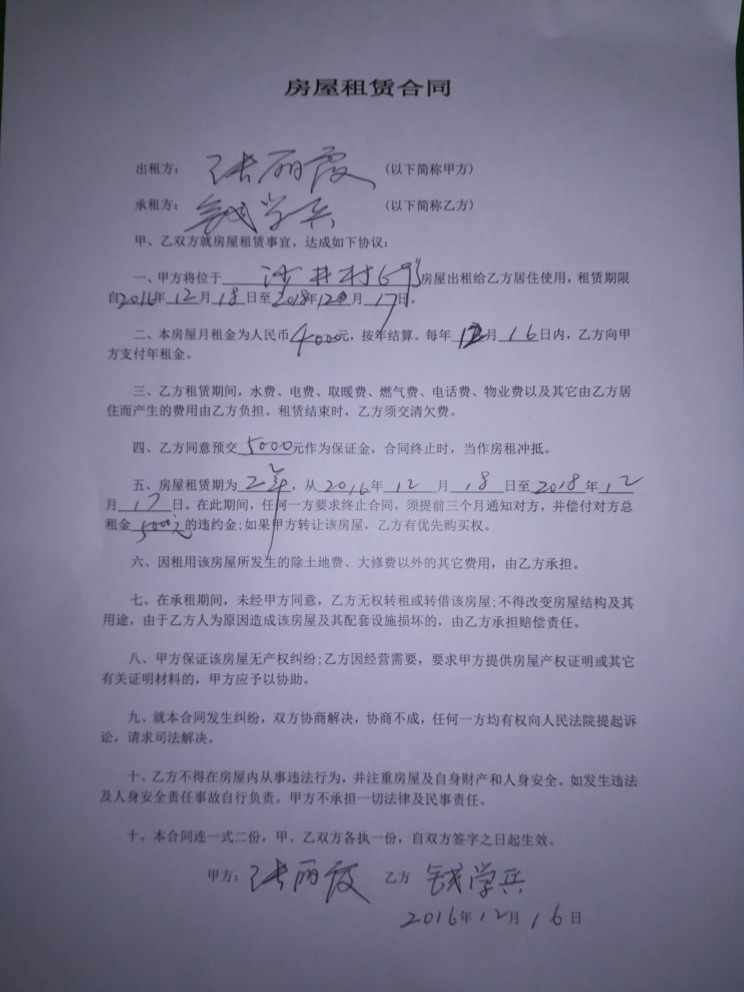 房屋租赁合同
出租方：张丽霞（以下简称甲方）
承租方：钱学兵（以下简称乙方）
甲、乙双方就房屋租赁事宜，达成如下协议：
一、甲方将位于沙井村69号房屋出租给乙方居住使用，租赁期限
自2016年12月18日至2018年12月17日。
二、本房屋月租金为人民币4000元，按年结算。每年12月16日内，乙方向甲
方支付年租金。
三、乙方租赁期间，水费、电费、取暖费、燃气费、电话费、物业费以及其它由乙方居
住而产生的费用由乙方负担。租赁结束时，乙方须交清欠费。
四、乙方同意预交5000元作为保证金，合同终止时，当作房租冲抵。
五、房屋租赁期为2年，从2016年12月18日至2018年12
月17日。在此期间，任何一方要求终止合同，须提前三个月通知对方，并偿付对方总
租金5000元的违约金;如果甲方转让该房屋，乙方有优先购买权。
六、因租用该房屋所发生的除土地费、大修费以外的其它费用，由乙方承担。
七、在承租期间，未经甲方同意，乙方无权转租或转借该房屋;不得改变房屋结构及其
用途，由于乙方人为原因造成该房屋及其配套设施损坏的，由乙方承担赔偿责任。
八、甲方保证该房屋无产权纠纷;乙方因经营需要，要求甲方提供房屋产权证明或其它
有关证明材料的，甲方应予以协助。
九、就本合同发生纠纷，双方协商解决，协商不成，任何一方均有权向人民法院提起诉
讼，请求司法解决。
十、乙方不得在房屋内从事违法行为，并注重房屋及自身财产和人身安全。如发生违法
及人身安全责任事故自行负责。甲方不承担一切法律及民事责任。
十、本合同连一式二份，甲、乙双方各执一份，自双方签字之日起生效。
甲方：张丽霞 乙方 钱学兵
2016年12月16日